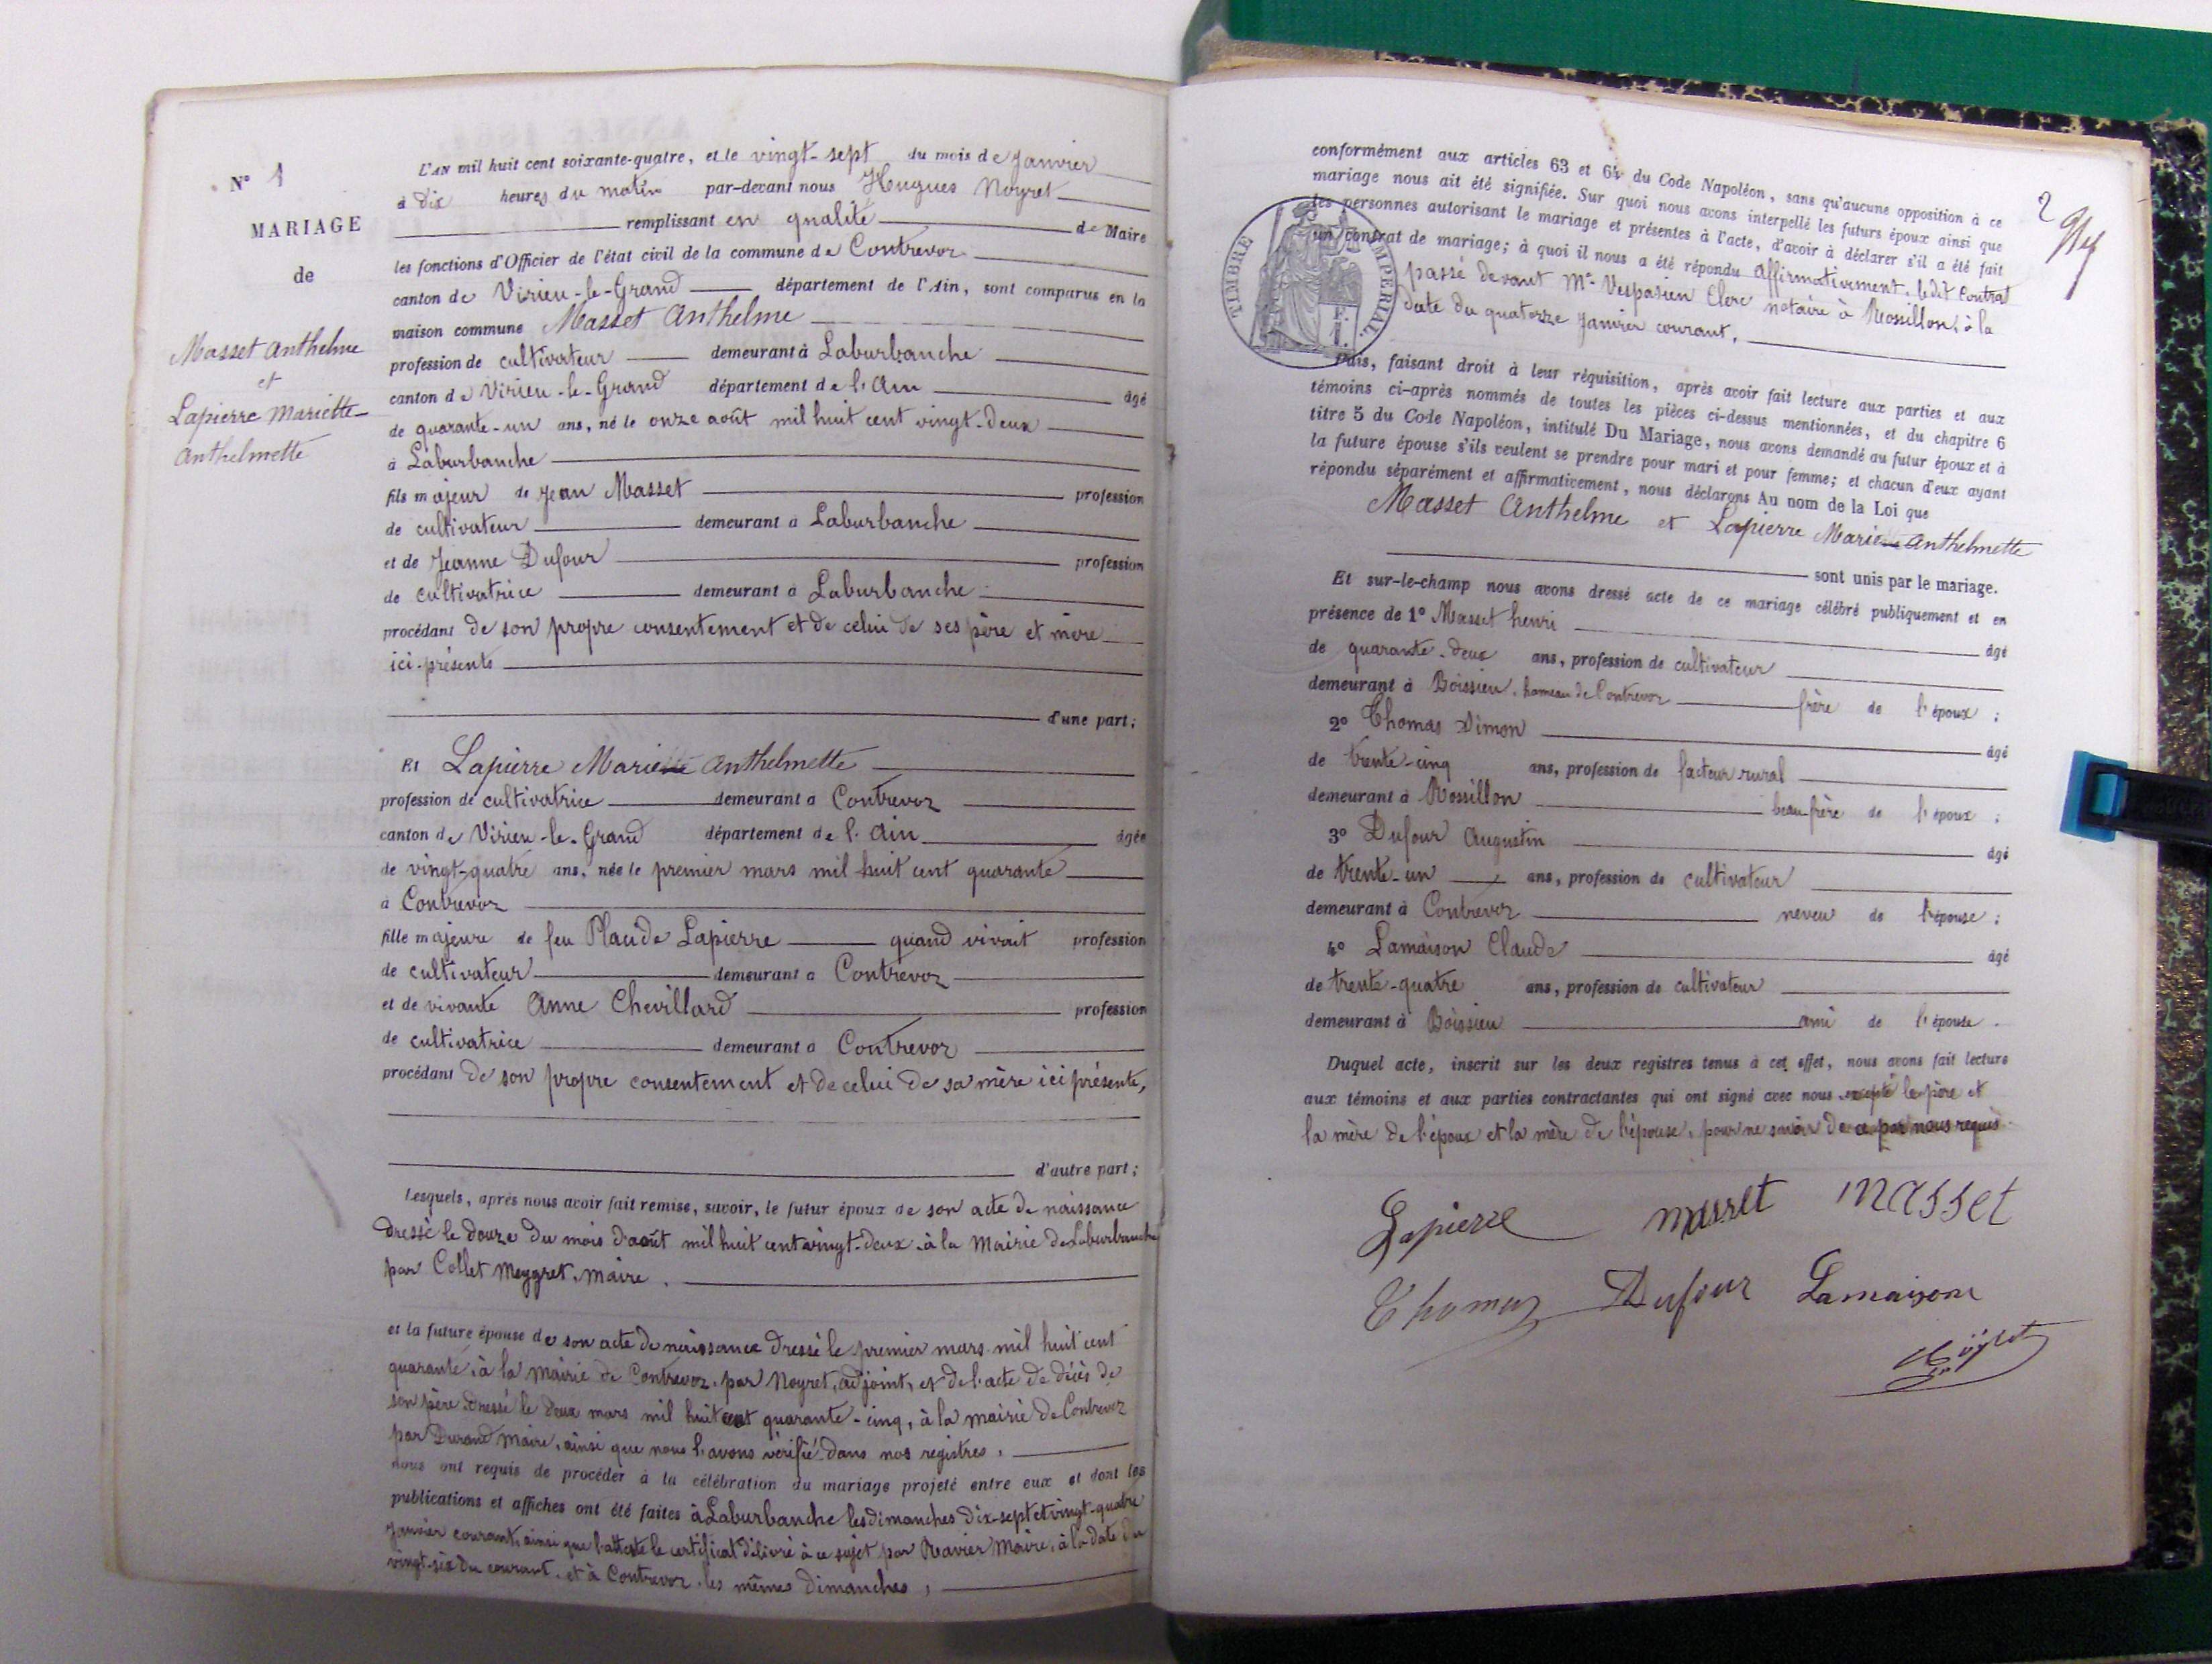 N° 1
MARIAGE
de
Masset Anthelme
et
Lapierre Mariette
Anthelmette
L'AN mil huit cent soixante-quatre, et le vingt-sept du mois de Janvier
à dix heures du matin par-devant nous Hugues Noyret
remplissant en qualité de Maire
les fonctions d'Officier de l'état civil de la commune de Contrevoz
canton de Virieu-le-Grand département de l'Ain, sont comparus en la
maison commune Masset Anthelme
profession de cultivateur demeurant à Laburbanche
canton de Virieu-le-Grand département de l'Ain âgé
de quarante-un ans, né le onze août mil huit cent vingt-deux
à Laburbanche
fils majeur de Jean Masset profession
de cultivateur demeurant à Laburbanche
et de Jeanne Dufour profession
de cultivatrice demeurant à Laburbanche
procédant de son propre consentement et de celui de ses père et mère
ici-présents
d'une part;
Et Lapierre Mariette Anthelmette
profession de cultivatrice demeurant à Contrevoz
canton de Virieu-le-Grand département de l'Ain âgée
de vingt-quatre ans, née le premier mars mil huit cent quarante
à Contrevoz
fille majeure de feu Plaude Lapierre quand vivait profession
de cultivateur demeurant à Contrevoz
et de vivante Anne Chevillard profession
de cultivatrice demeurant à Contrevoz
procédant de son propre consentement et de celui de sa mère ici présente,
d'autre part;
Lesquels, après nous avoir fait remise, savoir, le futur époux de son acte de naissance
dressé le douze du mois d'août mil huit cent vingt-deux à la Mairie de Laburbanche
par Collet Meygret, maire.
et la future épouse de son acte de naissance dressé le premier mars mil huit cent
quarante, à la mairie de Contrevoz, par Noyret, adjoint, et de l'acte de décès de
son père dressé le deux mars mil huit cent quarante-cinq, à la mairie de Contrevoz
par Durand Maire, ainsi que nous l'avons vérifié dans nos registres,
nous ont requis de procéder à la célébration du mariage projeté entre eux et dont les
publications et affiches ont été faites à Laburbanche les dimanches dix-sept et vingt-quatre
Janvier courant, ainsi que l'atteste le certificat délivré à ce sujet par Ravier Maire, à la date du
vingt-six du courant, et à Contrevoz, les mêmes dimanches,
2
conformément aux articles 63 et 64 du Code Napoléon, sans qu'aucune opposition à ce
mariage nous ait été signifiée. Sur quoi nous avons interpellé les futurs époux ainsi que
les personnes autorisant le mariage et présentes à l'acte, d'avoir à déclarer s'il a été fait
un contrat de mariage; à quoi il nous a été répondu affirmativement, ledit Contrat
passé devant Me Vespasien Clerc notaire à Rossillon, à la
date du quatorze Janvier courant,
TIMBRE IMPERIAL.
Puis, faisant droit à leur réquisition, après avoir fait lecture aux parties et aux
témoins ci-après nommés de toutes les pièces ci-dessus mentionnées, et du chapitre 6
titre 5 du Code Napoléon, intitulé Du Mariage, nous avons demandé au futur époux et à
la future épouse s'ils veulent se prendre pour mari et pour femme; et chacun d'eux ayant
répondu séparément et affirmativement, nous déclarons Au nom de la Loi que
Masset Anthelme et Lapierre Mariette Anthelmette
sont unis par le mariage.
Et sur-le-champ nous avons dressé acte de ce mariage célébré publiquement et en
présence de 1° Masset henri âgé
de quarante-deux ans, profession de cultivateur
demeurant à Boissieu, hameau de Contrevoz frère de l'époux ;
2° Thomas Simon âgé
de trente-cinq ans, profession de facteur rural
demeurant à Rossillon beau-frère de l'époux ;
3° Dufour Augustin âgé
de trente-un ans, profession de cultivateur
demeurant à Contrevoz neveu de l'épouse ;
4° Lamaison Claude âgé
de trente-quatre ans, profession de cultivateur
demeurant à Boissieu ami de l'épouse.
Duquel acte, inscrit sur les deux registres tenus à cet effet, nous avons fait lecture
aux témoins et aux parties contractantes qui ont signé avec nous excepté le père et
la mère de l'époux et la mère de l'épouse, pour ne savoir de ce par nous requis
Lapierre masset masset
Thomas Dufour Lamaison